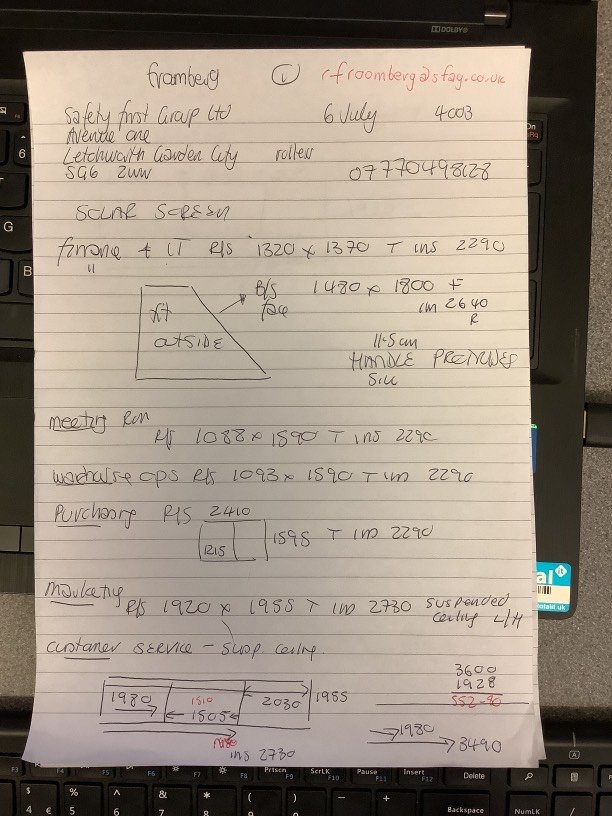 framberg ① cfroomberg@sfag.co.uk
Safety first Group Ltd 6 July 4003
Avenue one
Letchworth Garden City rollers
SG6 2WW 07770498128
SOLAR SCREEN
finance + IT R/S 1320 x 1370 T ins 2290
B/S 1480 x 1800 F
face im 2640
R
outside
11.5cm
HANDLE PROTRUDES
Sill
meeting Rom
R/S 1088 x 1590 T ins 2290
warehouse ops R/S 1093 x 1590 T im 2290
Purchasing R/S 2410
1215 1595 T im 2290
Marketing
R/S 1920 x 1955 T im 2730 suspended
ceiling L/H
customer SERVICE - susp. ceiling
3600
1928
1980 1510 2030 1955
1505
552-90
1980
3490
ins 2730
DOLBY